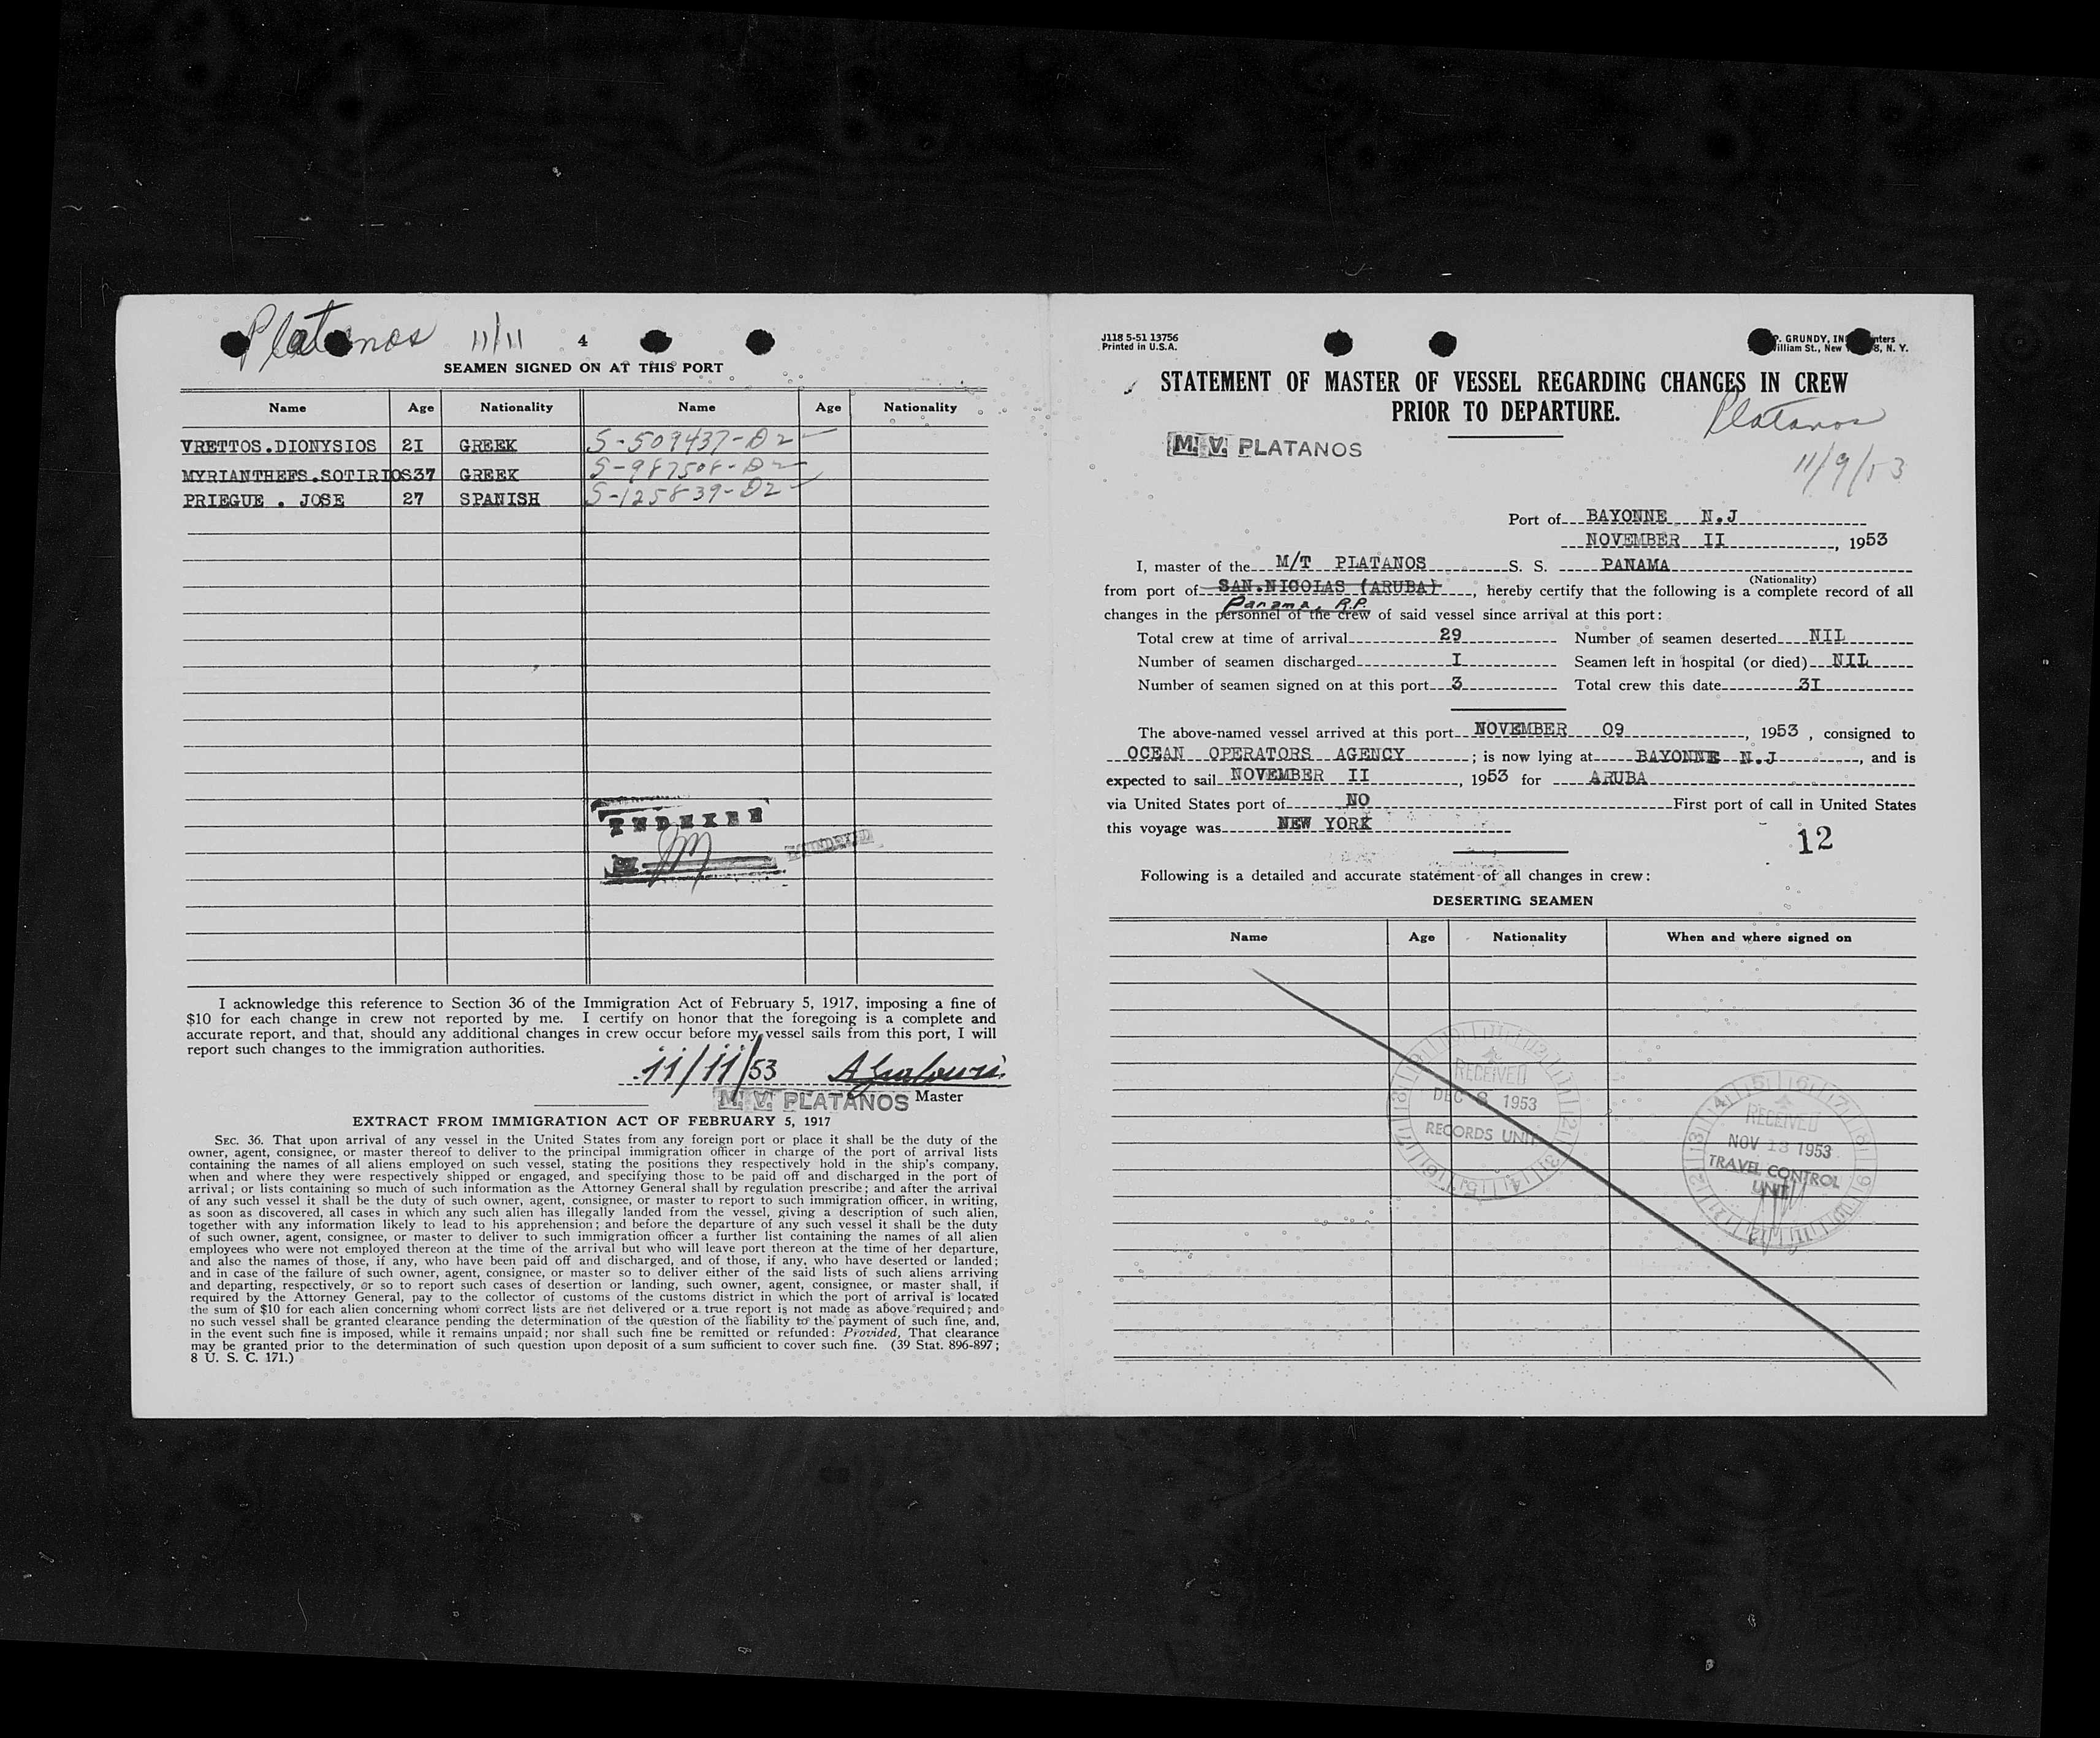 Platanos 11/11 4
SEAMEN SIGNED ON AT THIS PORT
Name Age Nationality Name Age Nationality
VRETTOS.DIONYSIOS 2I GREEK S-509437-D2
MYRIANTHEFS.SOTIRIOS37 GREEK S-987508-D2
PRIEGUE . JOSE 27 SPANISH S-125839-D2
INDEXED
I acknowledge this reference to Section 36 of the Immigration Act of February 5, 1917, imposing a fine of
$10 for each change in crew not reported by me. I certify on honor that the foregoing is a complete and
accurate report, and that, should any additional changes in crew occur before my vessel sails from this port, I will
report such changes to the immigration authorities.
11/11/53
M. V. PLATANOS Master
EXTRACT FROM IMMIGRATION ACT OF FEBRUARY 5, 1917
SEC. 36. That upon arrival of any vessel in the United States from any foreign port or place it shall be the duty of the
owner, agent, consignee, or master thereof to deliver to the principal immigration officer in charge of the port of arrival lists
containing the names of all aliens employed on such vessel, stating the positions they respectively hold in the ship's company,
when and where they were respectively shipped or engaged, and specifying those to be paid off and discharged in the port of
arrival; or lists containing so much of such information as the Attorney General shall by regulation prescribe; and after the arrival
of any such vessel it shall be the duty of such owner, agent, consignee, or master to report to such immigration officer, in writing,
as soon as discovered, all cases in which any such alien has illegally landed from the vessel, giving a description of such alien,
together with any information likely to lead to his apprehension; and before the departure of any such vessel it shall be the duty
of such owner, agent, consignee, or master to deliver to such immigration officer a further list containing the names of all alien
employees who were not employed thereon at the time of the arrival but who will leave port thereon at the time of her departure,
and also the names of those, if any, who have been paid off and discharged, and of those, if any, who have deserted or landed;
and in case of the failure of such owner, agent, consignee, or master so to deliver either of the said lists of such aliens arriving
and departing, respectively, or so to report such cases of desertion or landing, such owner, agent, consignee, or master shall, if
required by the Attorney General, pay to the collector of customs of the customs district in which the port of arrival is located
the sum of $10 for each alien concerning whom correct lists are not delivered or a true report is not made as above required; and
no such vessel shall be granted clearance pending the determination of the question of the liability to the payment of such fine, and,
in the event such fine is imposed, while it remains unpaid; nor shall such fine be remitted or refunded: Provided, That clearance
may be granted prior to the determination of such question upon deposit of a sum sufficient to cover such fine. (39 Stat. 896-897;
8 U. S. C. 171.)
J118 5-51 13756
Printed in U.S.A.
P. GRUNDY, INC
William St., New 8, N. Y.
STATEMENT OF MASTER OF VESSEL REGARDING CHANGES IN CREW
PRIOR TO DEPARTURE.
Platanos
M. V. PLATANOS
11/9/53
Port of BAYONNE N.J
NOVEMBER II, 1953
I, master of the M/T PLATANOS S. S. PANAMA
(Nationality)
from port of SAN.NICOLAS (ARUBA), hereby certify that the following is a complete record of all
Panama, R.P.
changes in the personnel of the crew of said vessel since arrival at this port:
Total crew at time of arrival 29 Number of seamen deserted NIL
Number of seamen discharged I Seamen left in hospital (or died) NIL
Number of seamen signed on at this port 3 Total crew this date 3I
The above-named vessel arrived at this port NOVEMBER 09, 1953, consigned to
OCEAN OPERATORS AGENCY; is now lying at BAYONNE N.J, and is
expected to sail NOVEMBER II, 1953 for ARUBA
via United States port of NO First port of call in United States
this voyage was NEW YORK
12
Following is a detailed and accurate statement of all changes in crew:
DESERTING SEAMEN
Name Age Nationality When and where signed on
RECEIVED
DEC 8 1953
RECORDS UNIT
RECEIVED
NOV 13 1953
TRAVEL CONTROL
UNIT